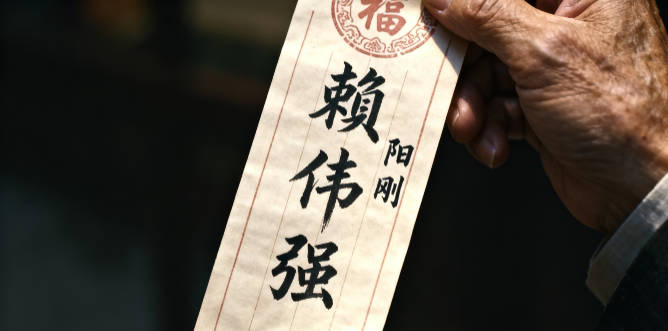 福
賴伟强
阳刚